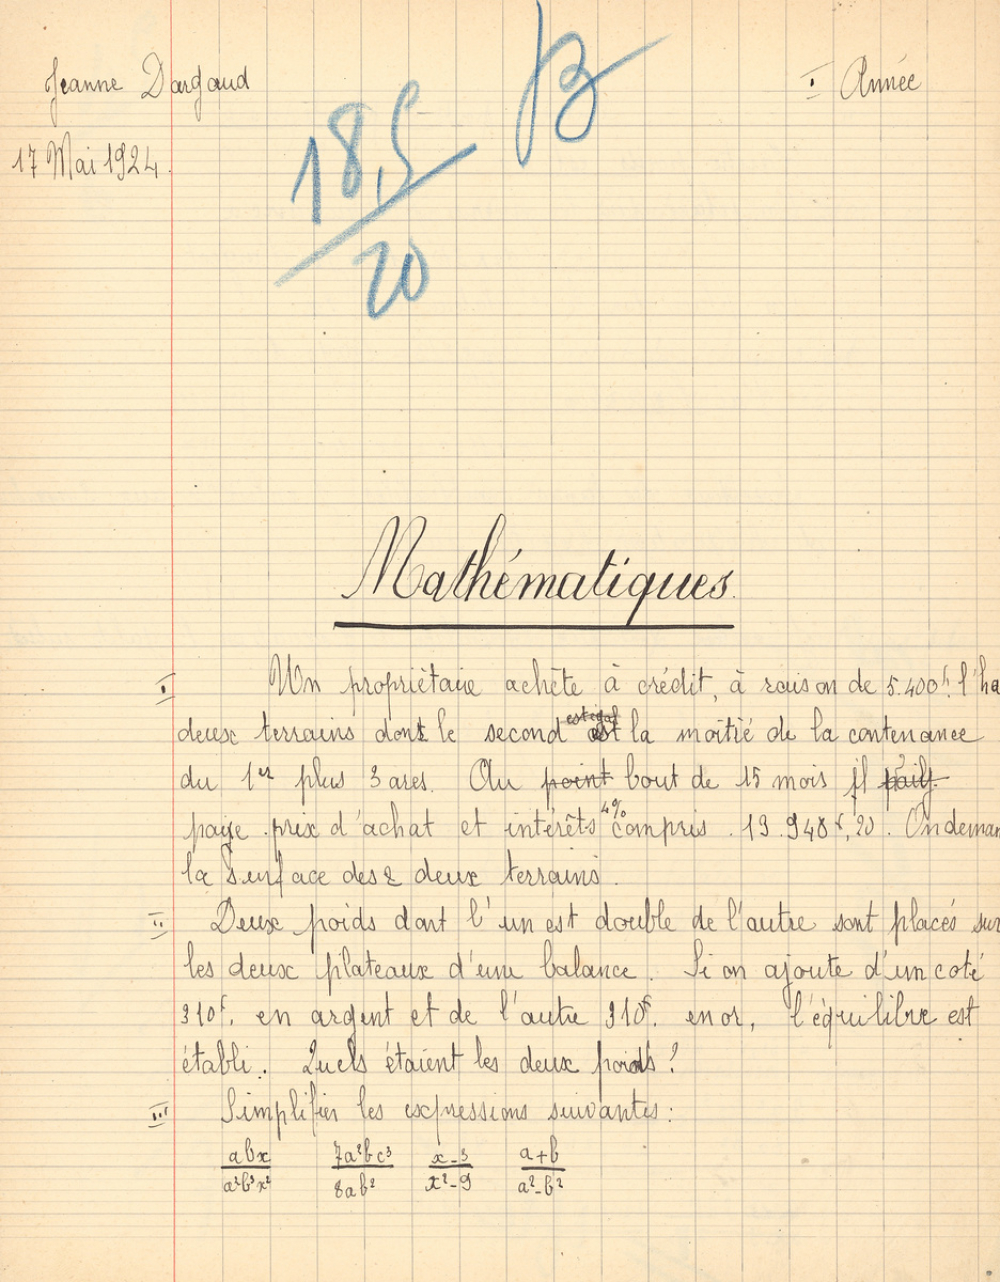 Jeanne Dargaud
I Année
17 Mai 1924.
18,5
20
Mathématiques.
I Un propriétaire achète à crédit, à raison de 5.400f. l'ha
deux terrains dont le second est la moitié de la contenance
est égal
du 1er plus 3 ares. Au point bout de 15 mois il
paye prix d'achat et intérêts 4% compris 19.948f,20. On deman
la surface des 2 deux terrains.
II Deux poids dont l'un est double de l'autre sont placés sur
les deux plateaux d'une balance. Si on ajoute d'un coté
310f. en argent et de l'autre 310f. en or, l'équilibre est
établi. Quels étaient les deux poids?
III Simplifier les expressions suivantes:
abx/a²b³x² 7a²bc³/8ab² x-3/x²-9 a+b/a²-b²